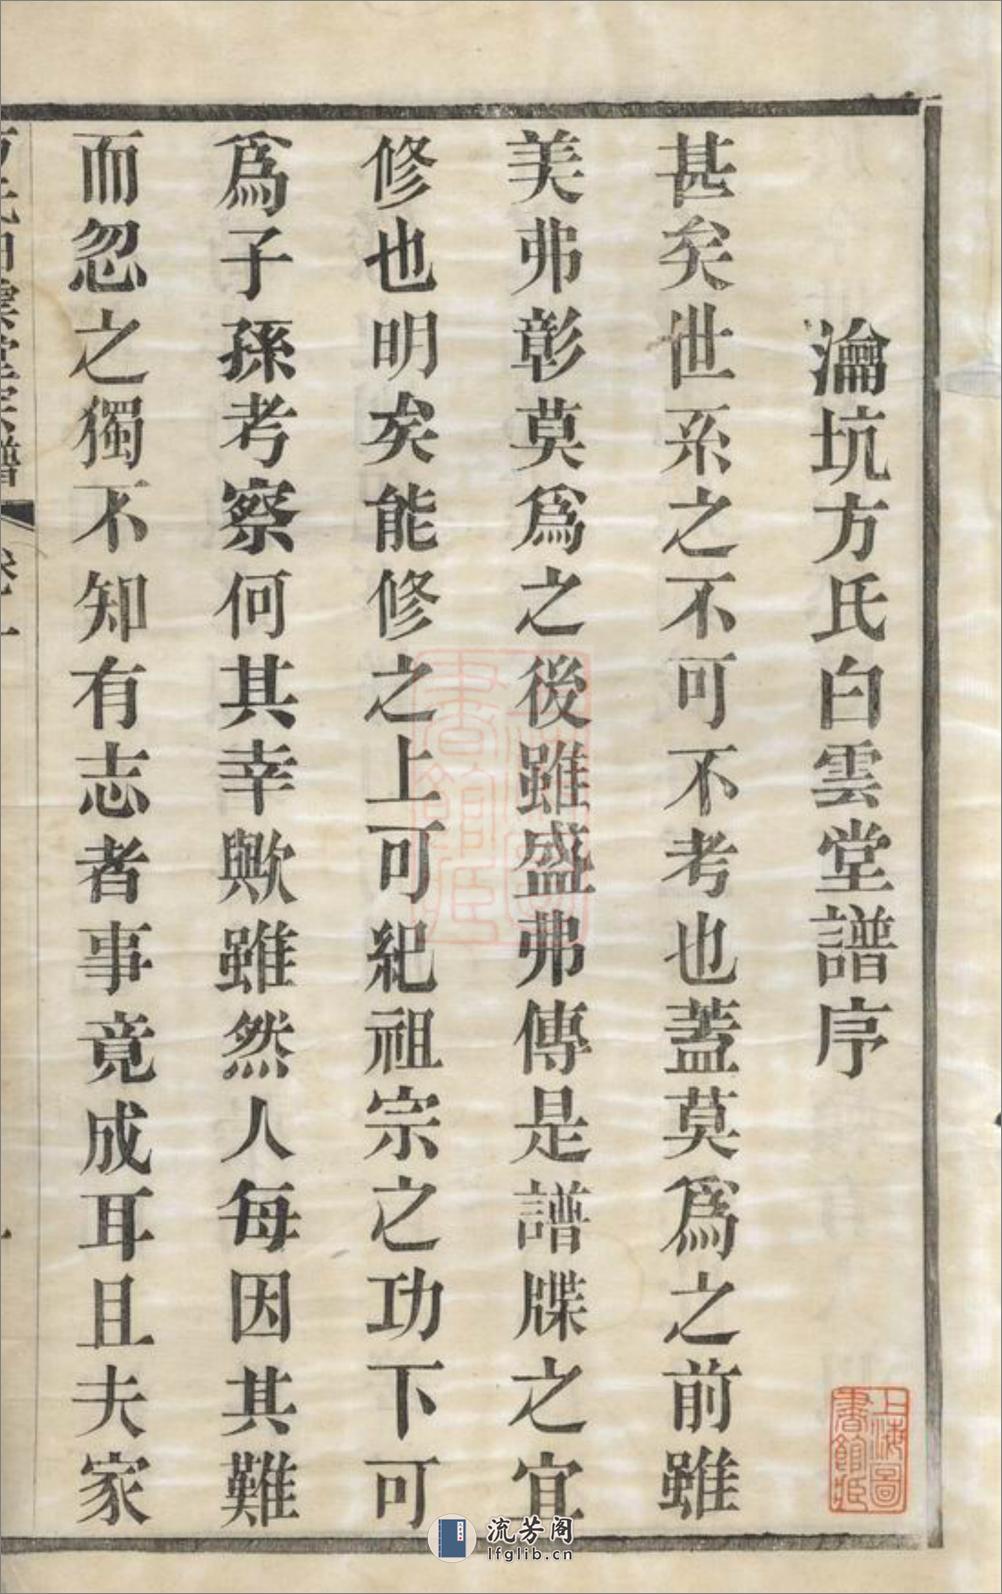 瀹坑方氏白雲堂譜序
甚矣世系之不可不考也蓋莫爲之前雖
美弗彰莫爲之後雖盛弗傳是譜牒之宜
修也明矣能修之上可紀祖宗之功下可
爲子孫考察何其幸歟雖然人每因其難
而忽之獨不知有志者事竟成耳且夫家
方氏白雲堂宗譜 卷一
上海圖書館藏
流芳阁
lfglib.cn